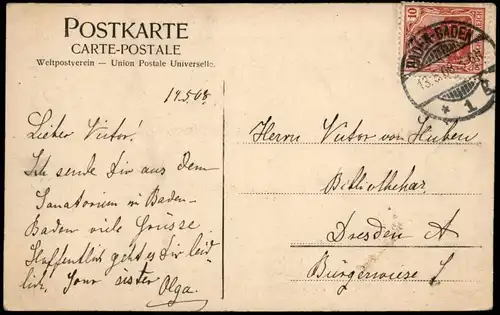 POSTKARTE
CARTE-POSTALE
Weltpostverein — Union Postale Universelle.
14.5.08.
Lieber Victor!
Ich sende Dir aus dem
Sanatorium in Baden-
Baden viele Grüsse
Hoffentlich geht es Dir leid-
lich. Your sister
Olga.
10
BADEN-BADEN
13.5.08
* 1
Herrn Victor von
Bibliothekar
Dresden A
Bürgerwiese